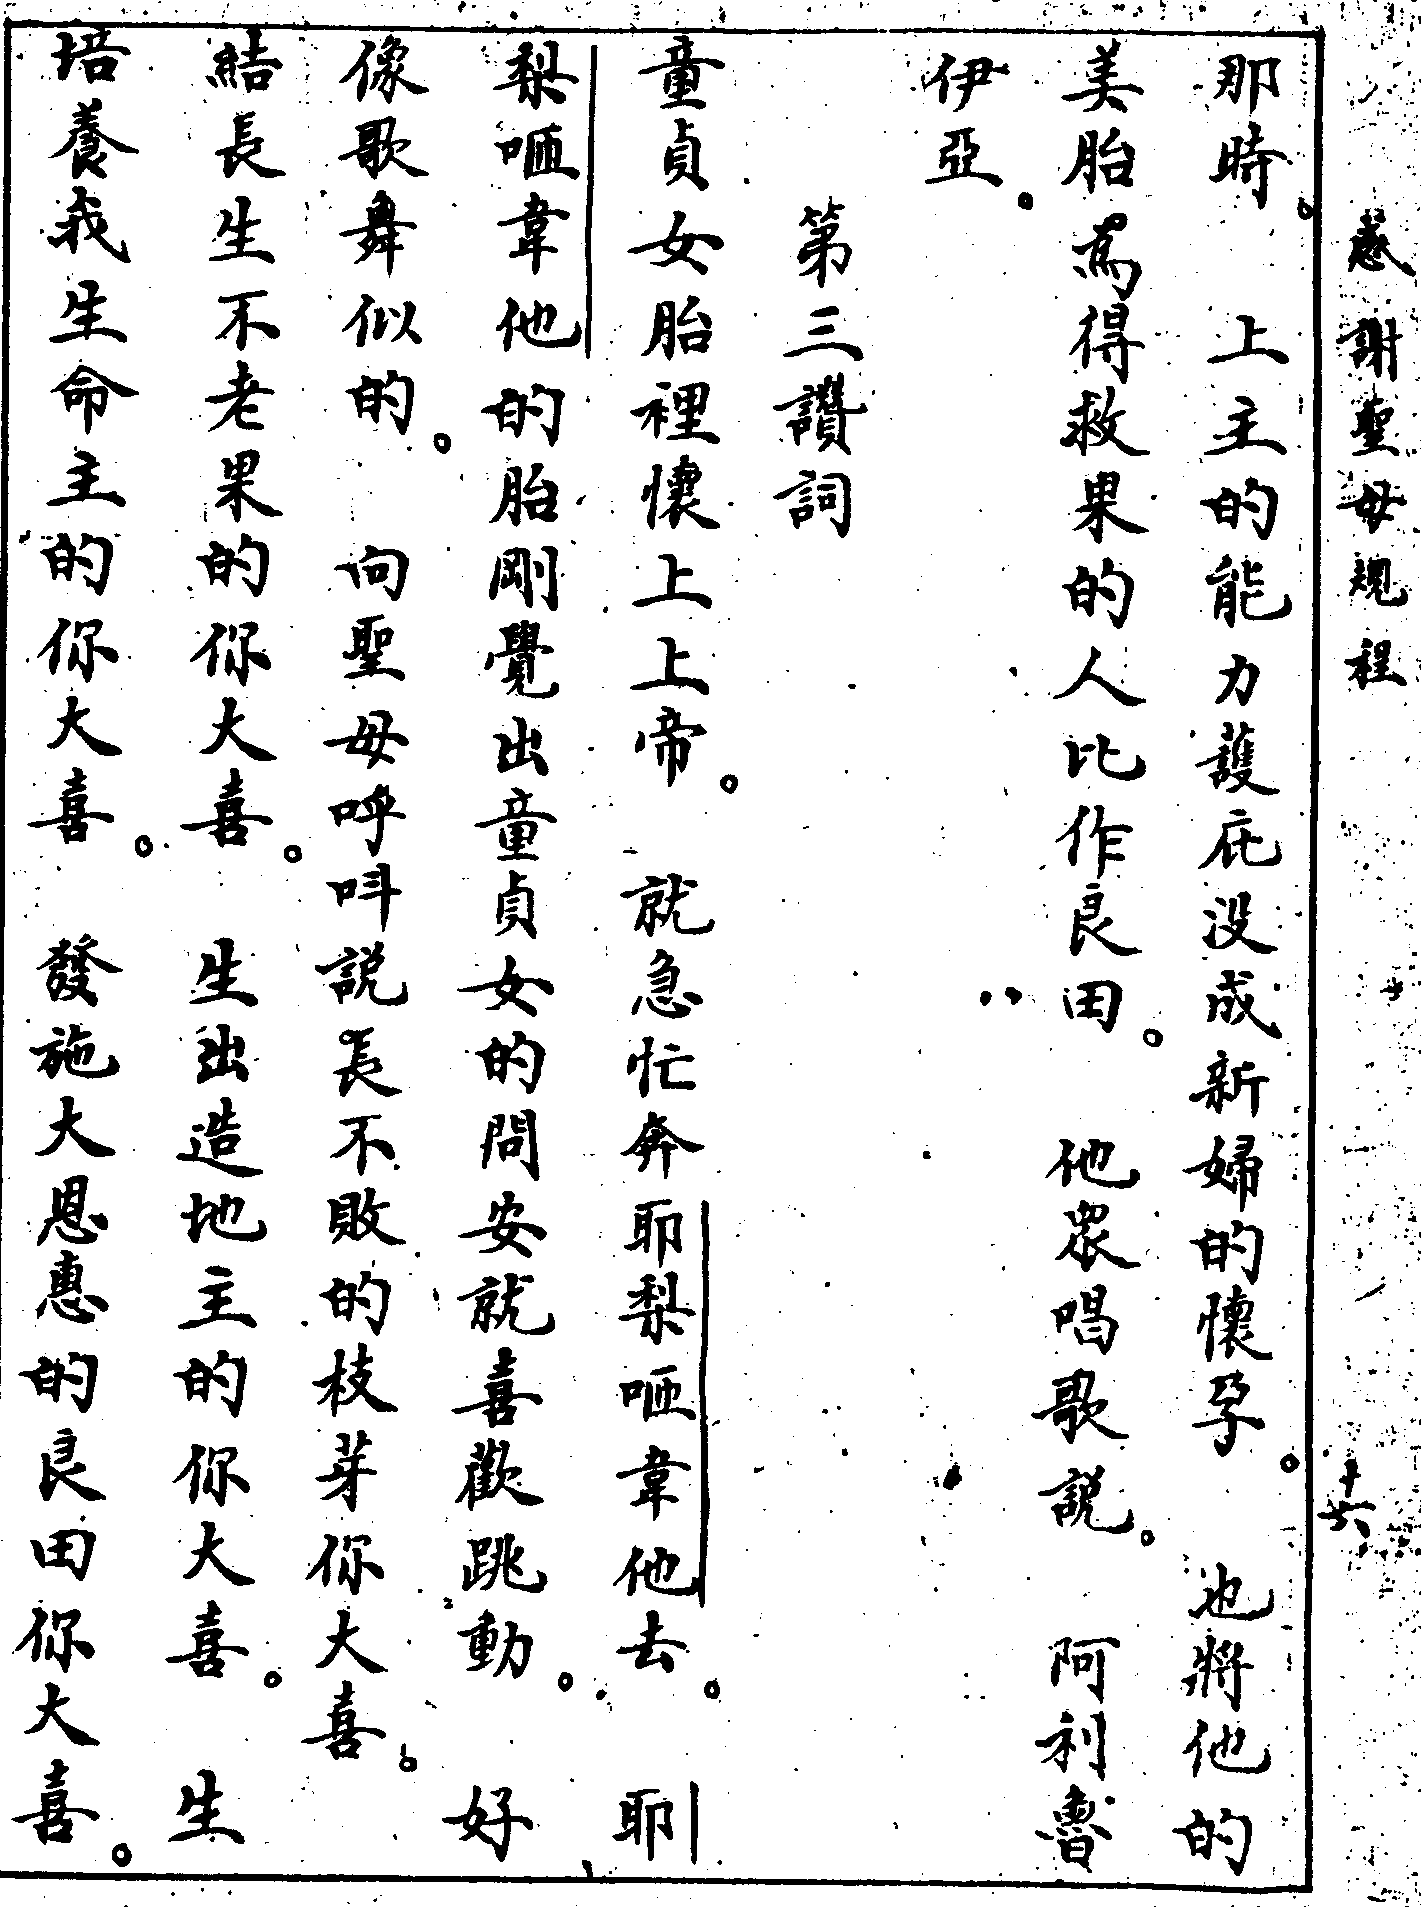 感謝聖母規程 十六
那時。 上主的能力護庇没成新婦的懷孕。 也將他的
美胎爲得救果的人比作良田。 他眾唱歌説。 阿利魯
伊亞。
第三讚詞
童貞女胎裡懷上上帝。 就急忙奔耶梨哂韋他去。 耶
梨哂韋他的胎剛覺出童貞女的問安就喜歡跳動。 好
像歌舞似的。 向聖母呼呌説長不敗的枝芽你大喜。
結長生不老果的你大喜。 生出造地主的你大喜。 生
培養我生命主的你大喜。 發施大恩惠的良田你大喜。